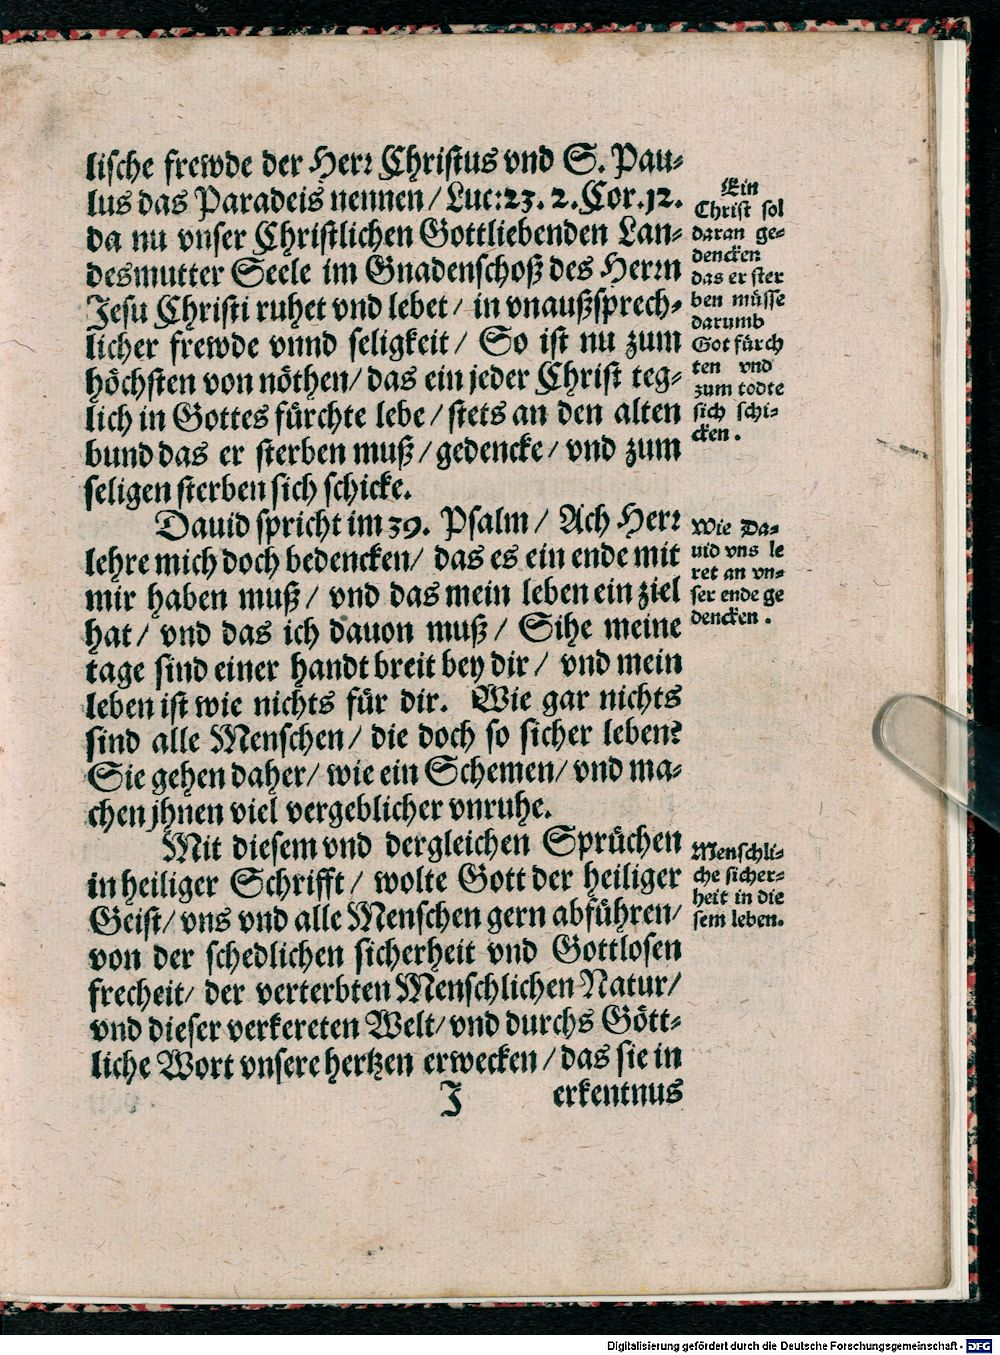 lische frewde der Herr Christus vnd S. Pau-
lus das Paradeis nennen / Luc:23. 2. Cor. 12.
da nu vnser Christlichen Gottliebenden Lan-
desmutter Seele im Gnadenschoß des Herrn
Jesu Christi ruhet vnd lebet / in vnaußsprech-
licher frewde vnnd seligkeit / So ist nu zum
höchsten von nöthen / das ein jeder Christ teg-
lich in Gottes fürchte lebe / stets an den alten
bund das er sterben muß / gedencke / vnd zum
seligen sterben sich schicke.
Ein
Christ sol
daran ge-
dencken
das er ster
ben müsse
darumb
Got fürch
ten vnd
zum todte
sich schi-
cken.
Dauid spricht im 39. Psalm / Ach Herr
lehre mich doch bedencken / das es ein ende mit
mir haben muß / vnd das mein leben ein ziel
hat / vnd das ich dauon muß / Sihe meine
tage sind einer handt breit bey dir / vnd mein
leben ist wie nichts für dir. Wie gar nichts
sind alle Menschen / die doch so sicher leben?
Sie gehen daher / wie ein Schemen / vnd ma-
chen jhnen viel vergeblicher vnruhe.
Wie Da-
uid vns le
ret an vn-
ser ende ge
dencken.
Mit diesem vnd dergleichen Sprüchen
in heiliger Schrifft / wolte Gott der heiliger
Geist / vns vnd alle Menschen gern abführen /
von der schedlichen sicherheit vnd Gottlosen
frecheit / der verterbten Menschlichen Natur /
vnd dieser verkereten Welt / vnd durchs Gött-
liche Wort vnsere hertzen erwecken / das sie in
Menschli-
che sicher-
heit in die
sem leben.
J erkentnus
Digitalisierung gefördert durch die Deutsche Forschungsgemeinschaft - DFG